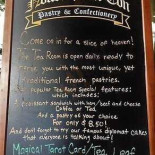 Pastry & Confectionery
Come on in for a slice of heaven!
The Tea Room is open daily to
you with the most unique, yet
traditional french pastries.
Popular Tea Room Special features:
which includes:
A croissant sandwich with ham, beef and cheese
Coffee or Tea
And a pastry of your choice
For only $8.50!
And don't forget to try our famous diplomat cakes
that everyone is talking about!
Magical Tarot Card/Tea Leaf